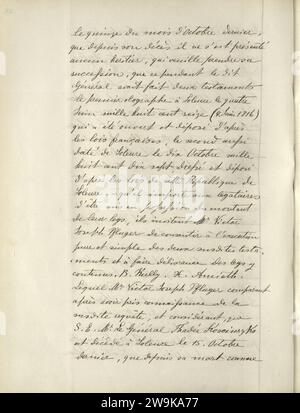 le quinze du mois d'Octobre dernier,
que depuis son décès, il ne s'est présenté
aucun héritier, qui veuille prendre sa
succession, que cependant le dit
Général avait fait deux testaments
le premier olographe à Soleure le quatre
Juin mille huit cent seize (4 Juin 1816)
qui a été ouvert et déposé d'après
les lois françaises, le second aussi
daté de Soleure, le dix Octobre mille
huit cent dix sept
d'après les lois de cette République de
Soleure
de leurs legs, ils invitent Mr Victor
Joseph Pfluger de consentir à l'exécution
pure et simple des deux susdits testa-
ments et à faire délivrance des legs y
contenus. B. Kully. X. Amiett.
Lequel Mr Victor Joseph Pfluger comparant
après avoir pris connaissance de la
susdite requête, et considérant que
S. E. Mr le Général Thadé Kosciuszko
est décédé à Soleure le 15 Octobre
dernier, que depuis sa mort comme
alamy
Image ID: 2W9KA77
www.alamy.com